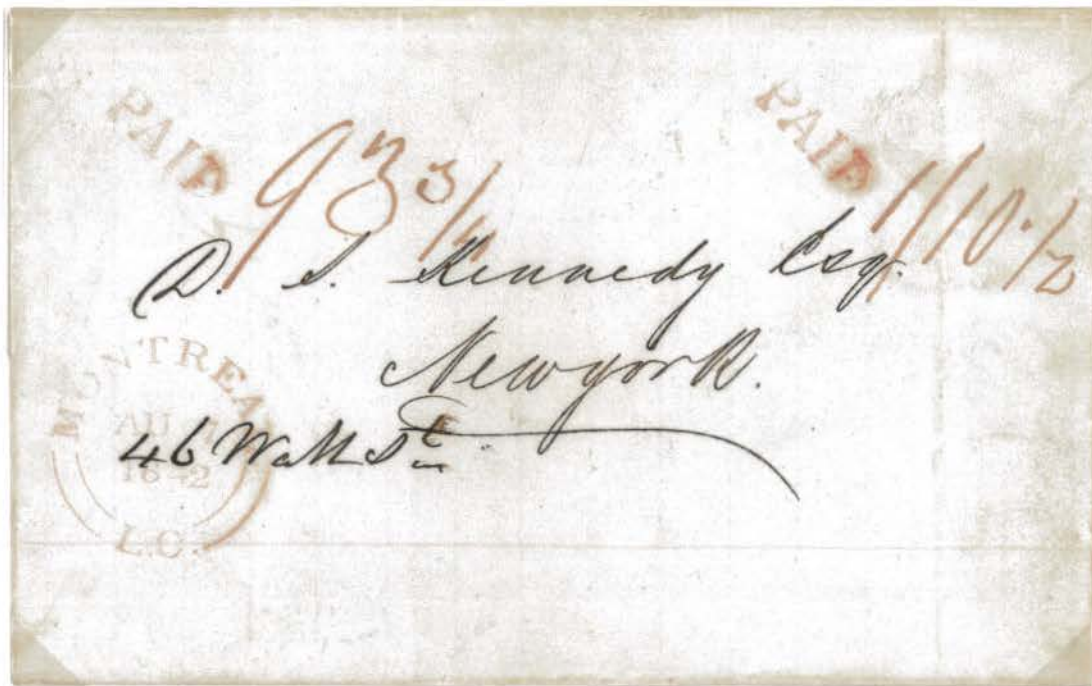 PAID PAID
93 3/4 1/10 1/2
D. S. Kennedy Esq.
Newyork.
46 Wall St
MONTREAL
AU
1842
L.C.